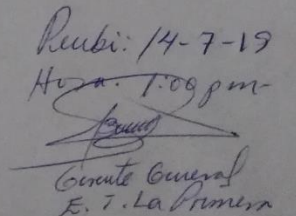 Recibi: 14-7-19
Hora. 1:00 pm-
Gerente General
E. T. La Primera